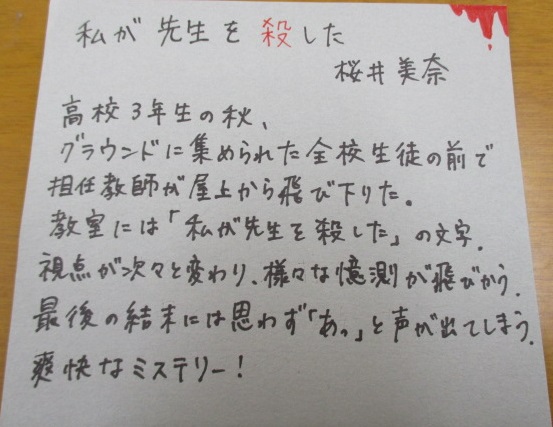 私が先生を殺した
桜井美奈
高校3年生の秋、
グラウンドに集められた全校生徒の前で
担任教師が屋上から飛び下りた。
教室には「私が先生を殺した」の文字.
視点が次々と変わり、様々な憶測が飛びかう.
最後の結末には思わず「あっ」と声が出てしまう.
爽快なミステリー!